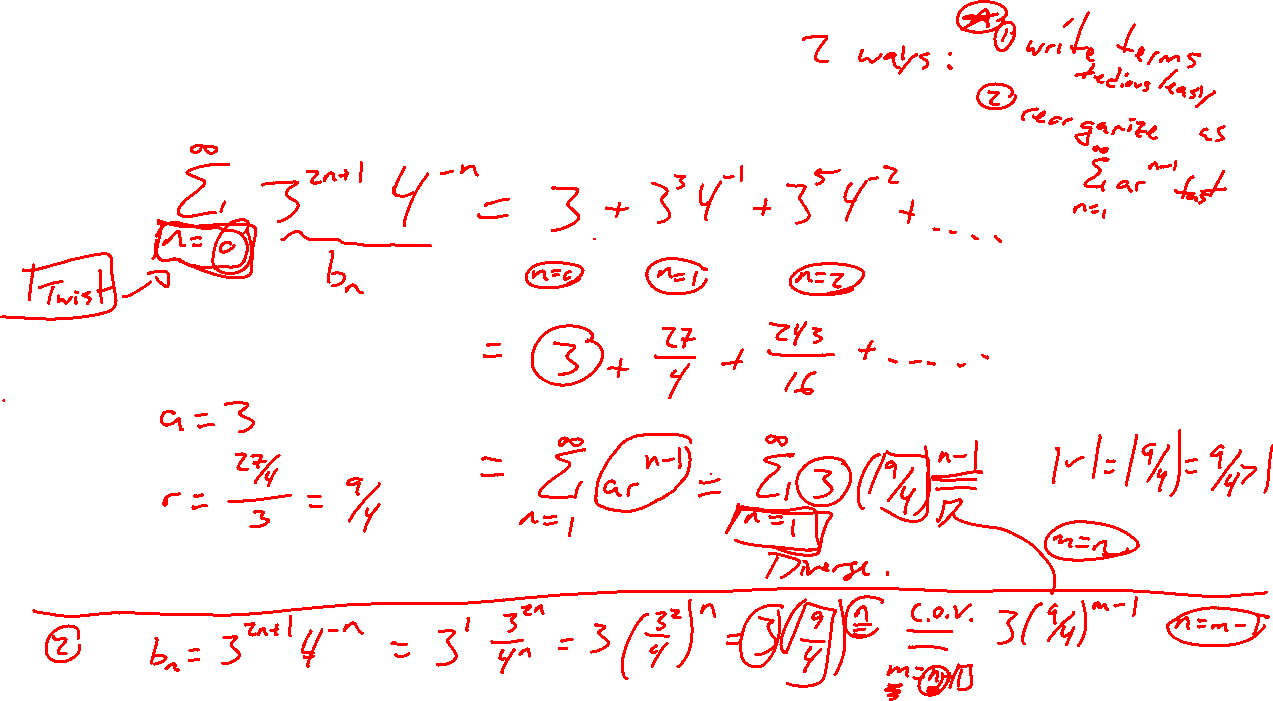 2 ways: ① write terms
tedious/easy
② reorganize as
∞
∑ ar^{n-1} fast
n=1
∞
∑ 3^{2n+1} 4^{-n} = 3 + 3^3 4^{-1} + 3^5 4^{-2} + ....
n=0
b_n
n=0 n=1 n=2
Twist
= 3 + 27/4 + 243/16 + .....
a = 3
r = (27/4)/3 = 9/4
= ∑_{n=1}^{∞} ar^{n-1} = ∑_{n=1}^{∞} 3 (9/4)^{n-1} |r| = |9/4| = 9/4 > 1
Diverge.
m=n
② b_n = 3^{2n+1} 4^{-n} = 3^1 3^{2n}/4^n = 3 (3^2/4)^n = 3 (9/4)^n C.O.V. 3 (9/4)^{m-1} n=m-1